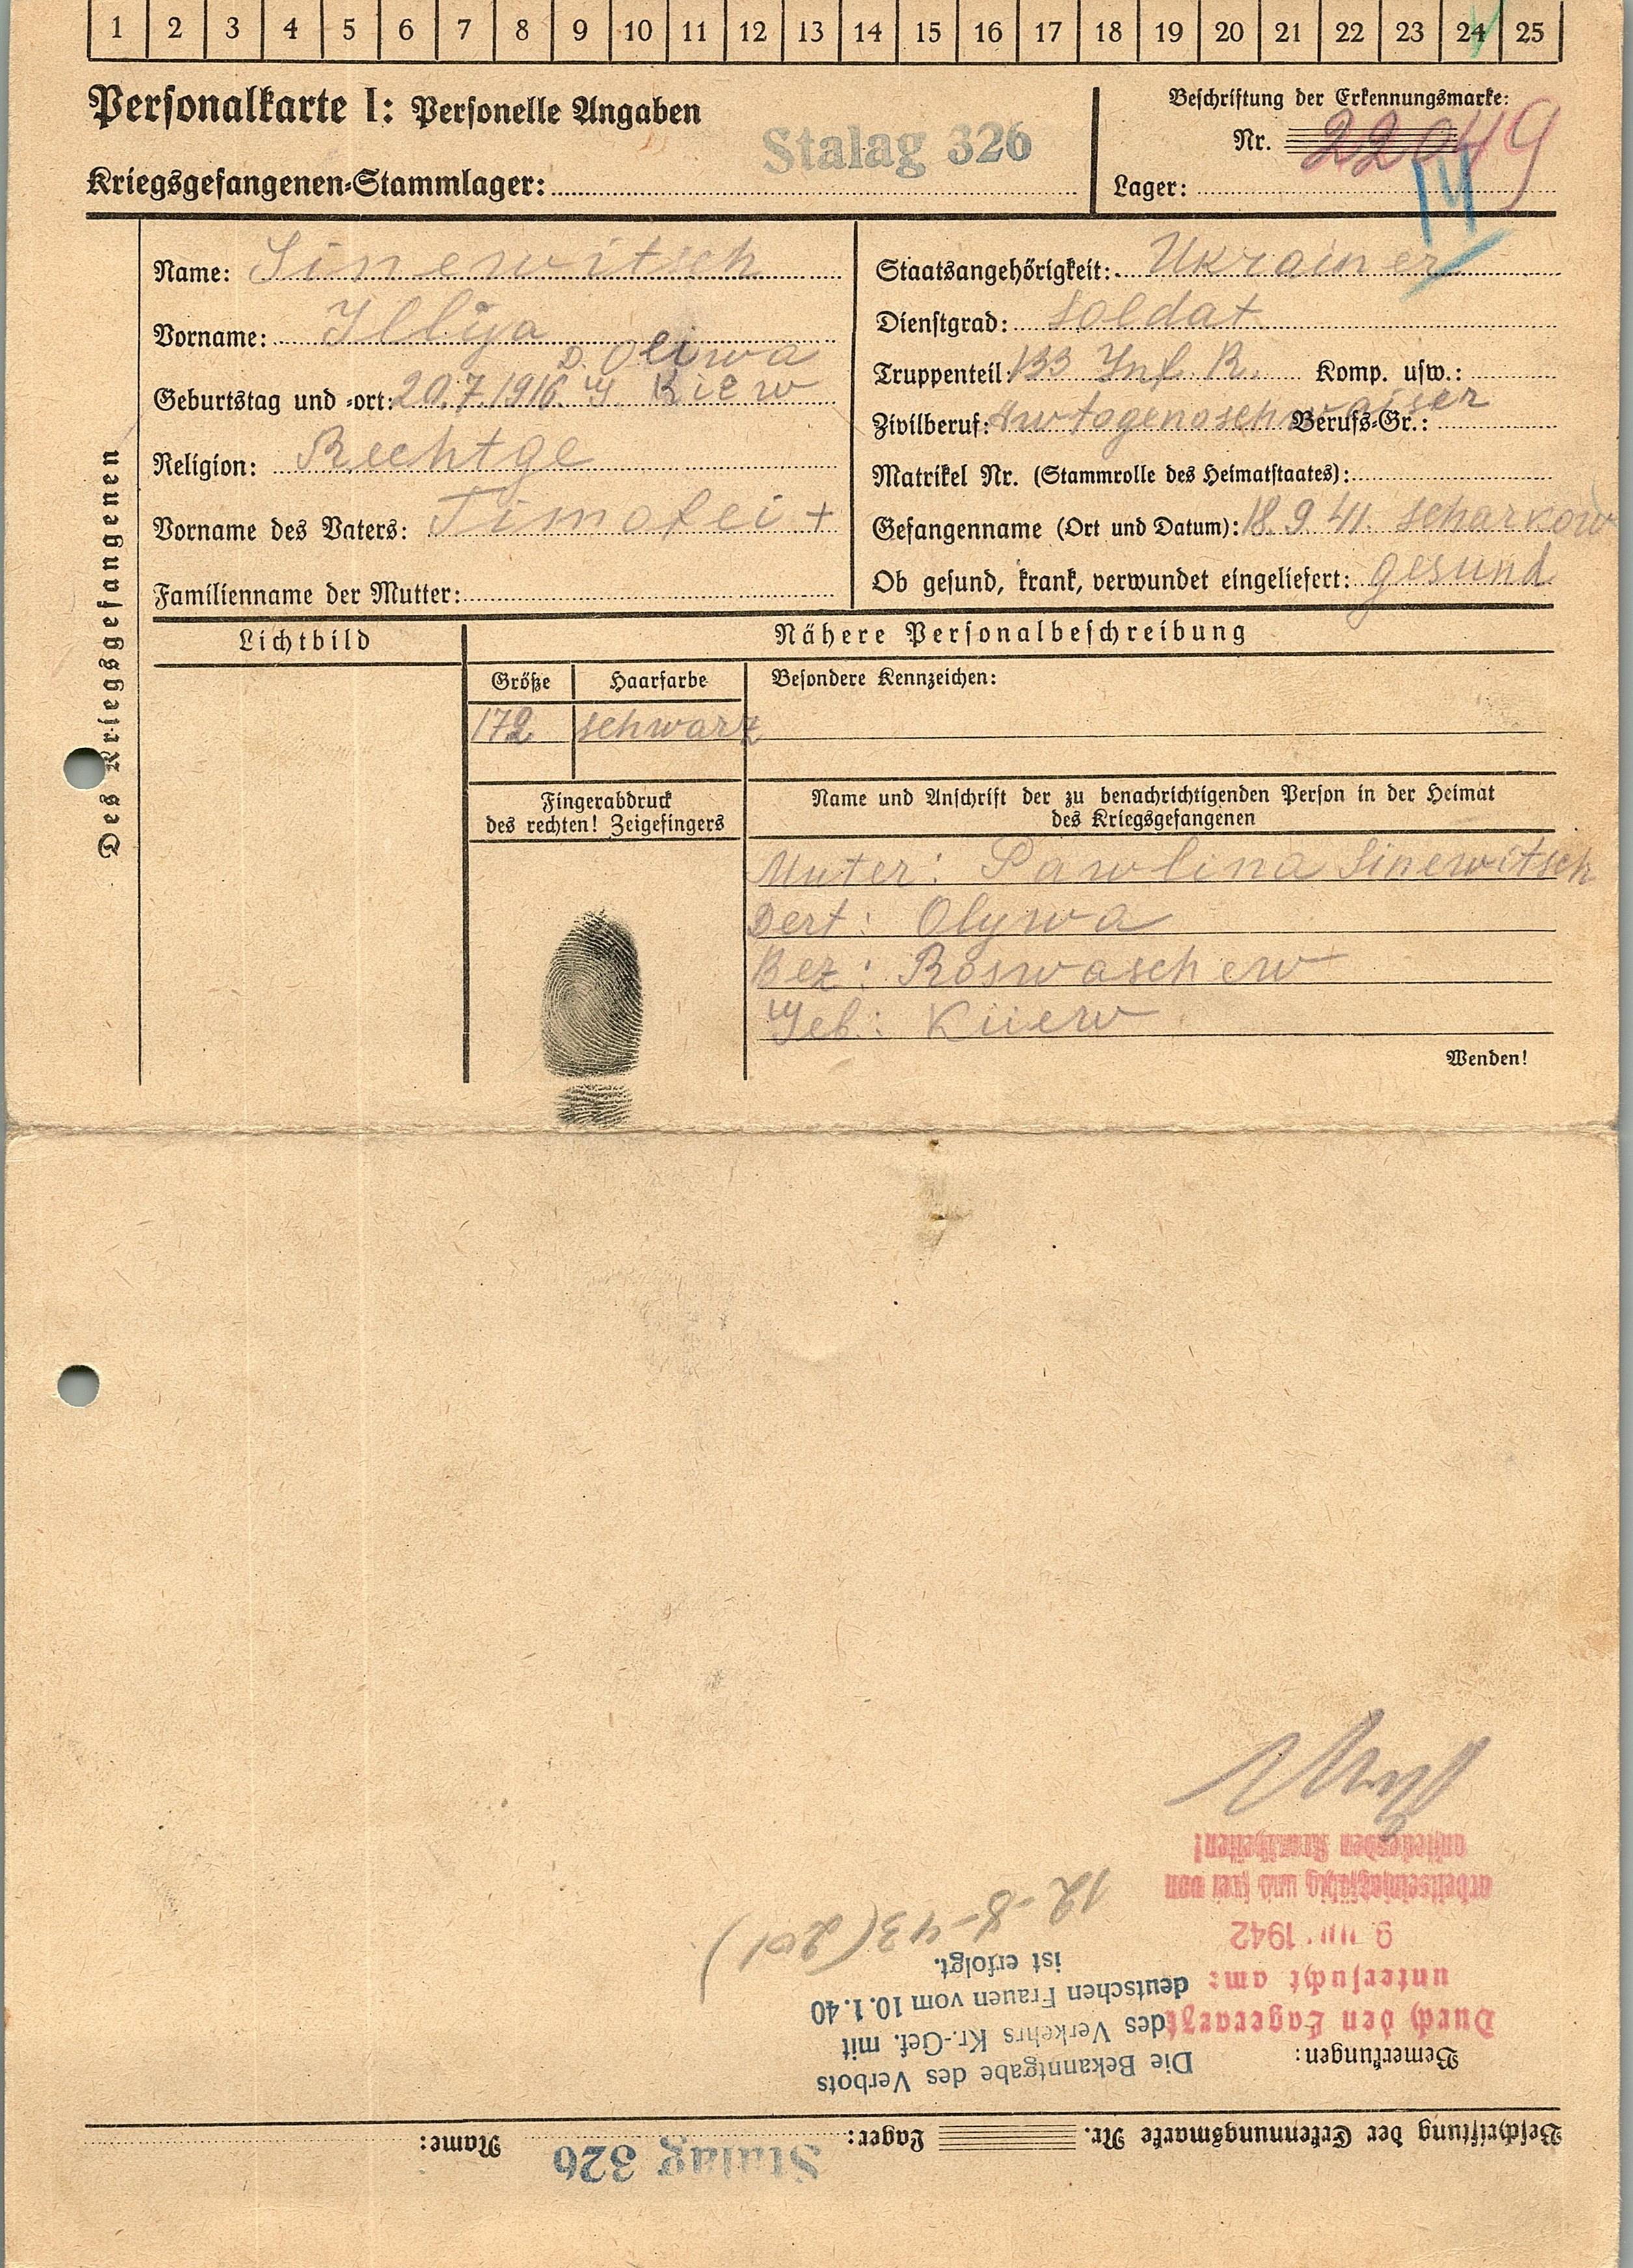 1 2 3 4 5 6 7 8 9 10 11 12 13 14 15 16 17 18 19 20 21 22 23 24 25
Personalkarte I: Personelle Angaben
Stalag 326
Kriegsgefangenen-Stammlager:
Beschriftung der Erkennungsmarke:
Nr. 22049
Lager:
IV
Des Kriegsgefangenen
Name: Sinewitsch
Vorname: Illija
D. Oliwa
Geburtstag und -ort: 20.7.1916. G. Kiew
Religion: Rechtge
Vorname des Vaters: Timofei +
Familienname der Mutter:
Staatsangehörigkeit: Ukrainer
Dienstgrad: Soldat
Truppenteil: 133 Inf. R. Komp. usw.:
Zivilberuf: Awtogenoschwaiser Berufs-Gr.:
Matrikel Nr. (Stammrolle des Heimatstaates):
Gefangenname (Ort und Datum): 18.9.41. Scharkow
Ob gesund, krank, verwundet eingeliefert: gesund
Lichtbild
Nähere Personalbeschreibung
Größe Haarfarbe Besondere Kennzeichen:
172 schwarz
Fingerabdruck
des rechten! Zeigefingers
Name und Anschrift der zu benachrichtigenden Person in der Heimat
des Kriegsgefangenen
Muter: Pawlina Sinewitsch
Dert: Olywa
Bez: Roswaschew
Geb.: Kiiew
Wenden!
Beschriftung der Erkennungsmarke Nr. Lager: Stalag 326 Name:
Bemerkungen:
Durch den Lagerarzt
untersucht am:
9. 1942
arbeitseinsatzfähig und frei von
ansteckenden Krankheiten!
Die Bekanntgabe des Verbots
des Verkehrs Kr.-Gef. mit
deutschen Frauen vom 10.1.40
ist erfolgt.
12-8-43 (201)